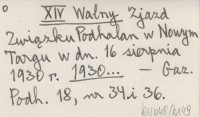 XIV Walny Zjazd
Związku Podhalan w Nowym
Targu w dn. 16 sierpnia
1930 r. 1930... — Gaz.
Podh. 18, nr 34 i 36.